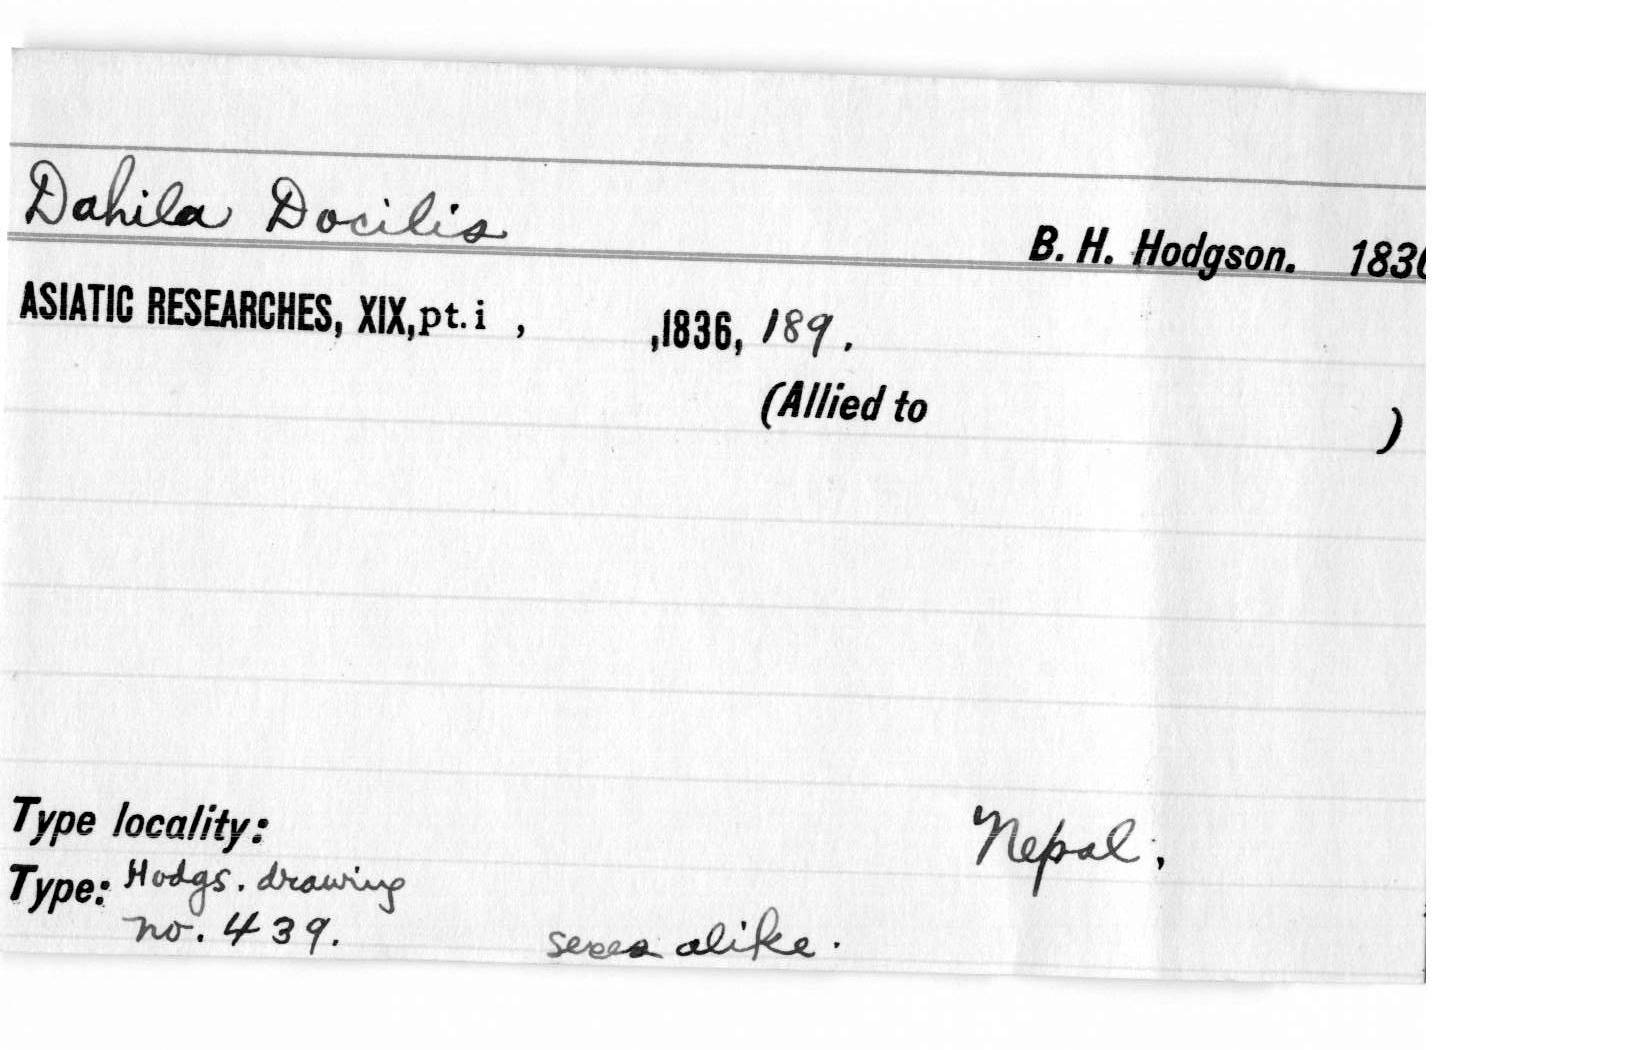 Dahila Docilis
B. H. Hodgson. 183
ASIATIC RESEARCHES, XIX, pt. i , ,1836, 189.
(Allied to )
Type locality: Nepal,
Type: Hodgs. drawing
no. 439. sexes alike.